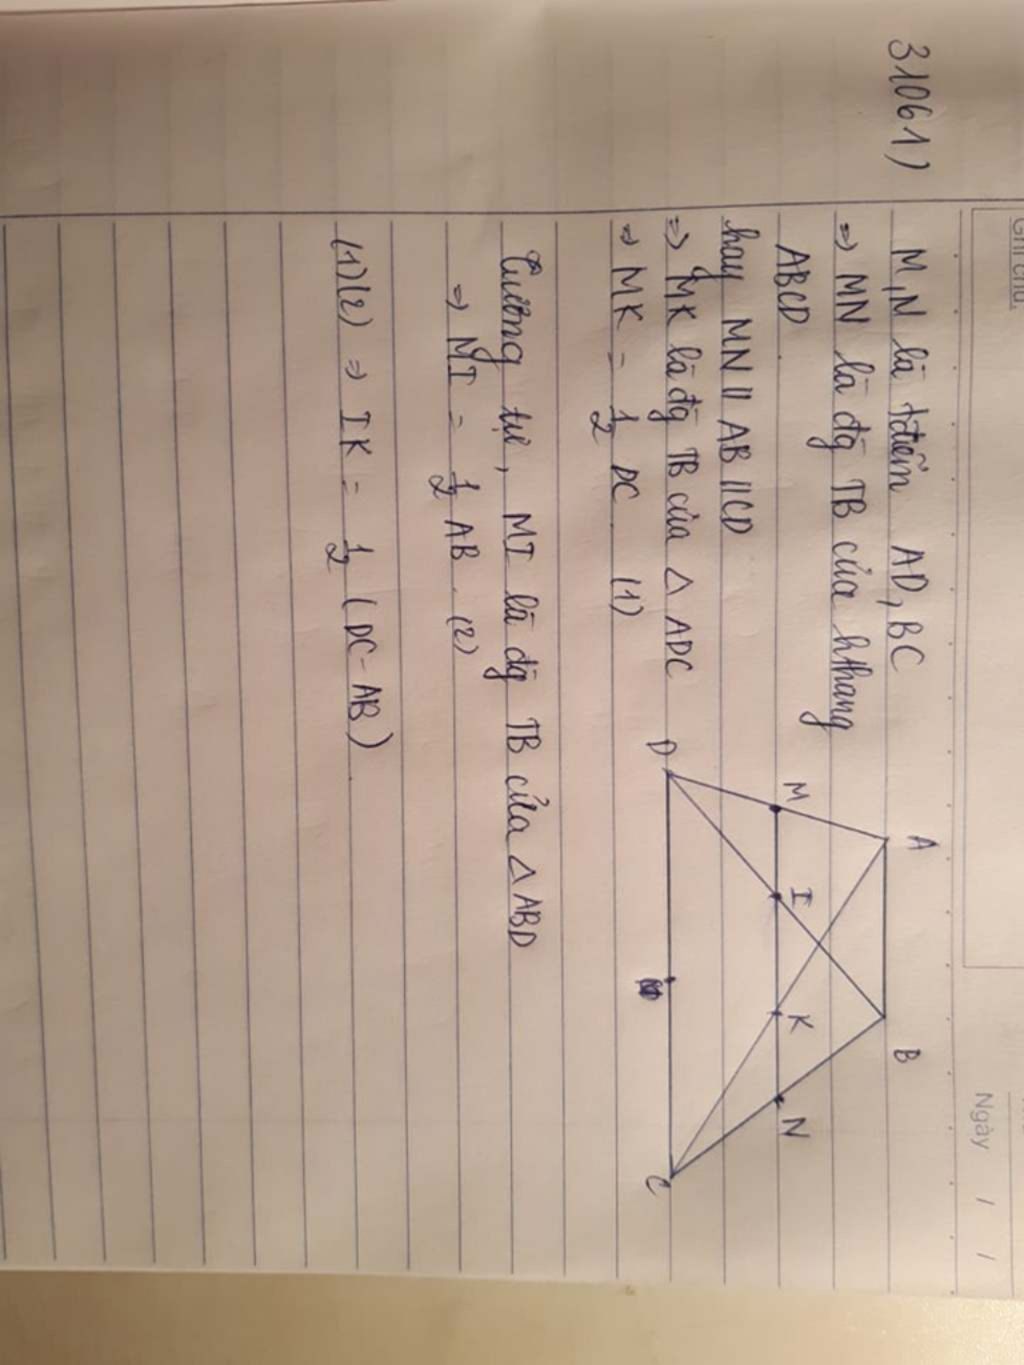 Ghi chú:
Ngày / /
31061)
M,N là tđiểm AD, BC
⇒ MN là đg TB của hthang
ABCD.
hay MN // AB // CD
⇒ MK là đg TB của △ ADC
⇒ MK = 1/2 DC (1)
Tương tự, MI là đg TB của △ ABD
⇒ MI = 1/2 AB. (2)
(1)(2) ⇒ IK = 1/2 (DC - AB).
A
B
M
I
K
N
D
C